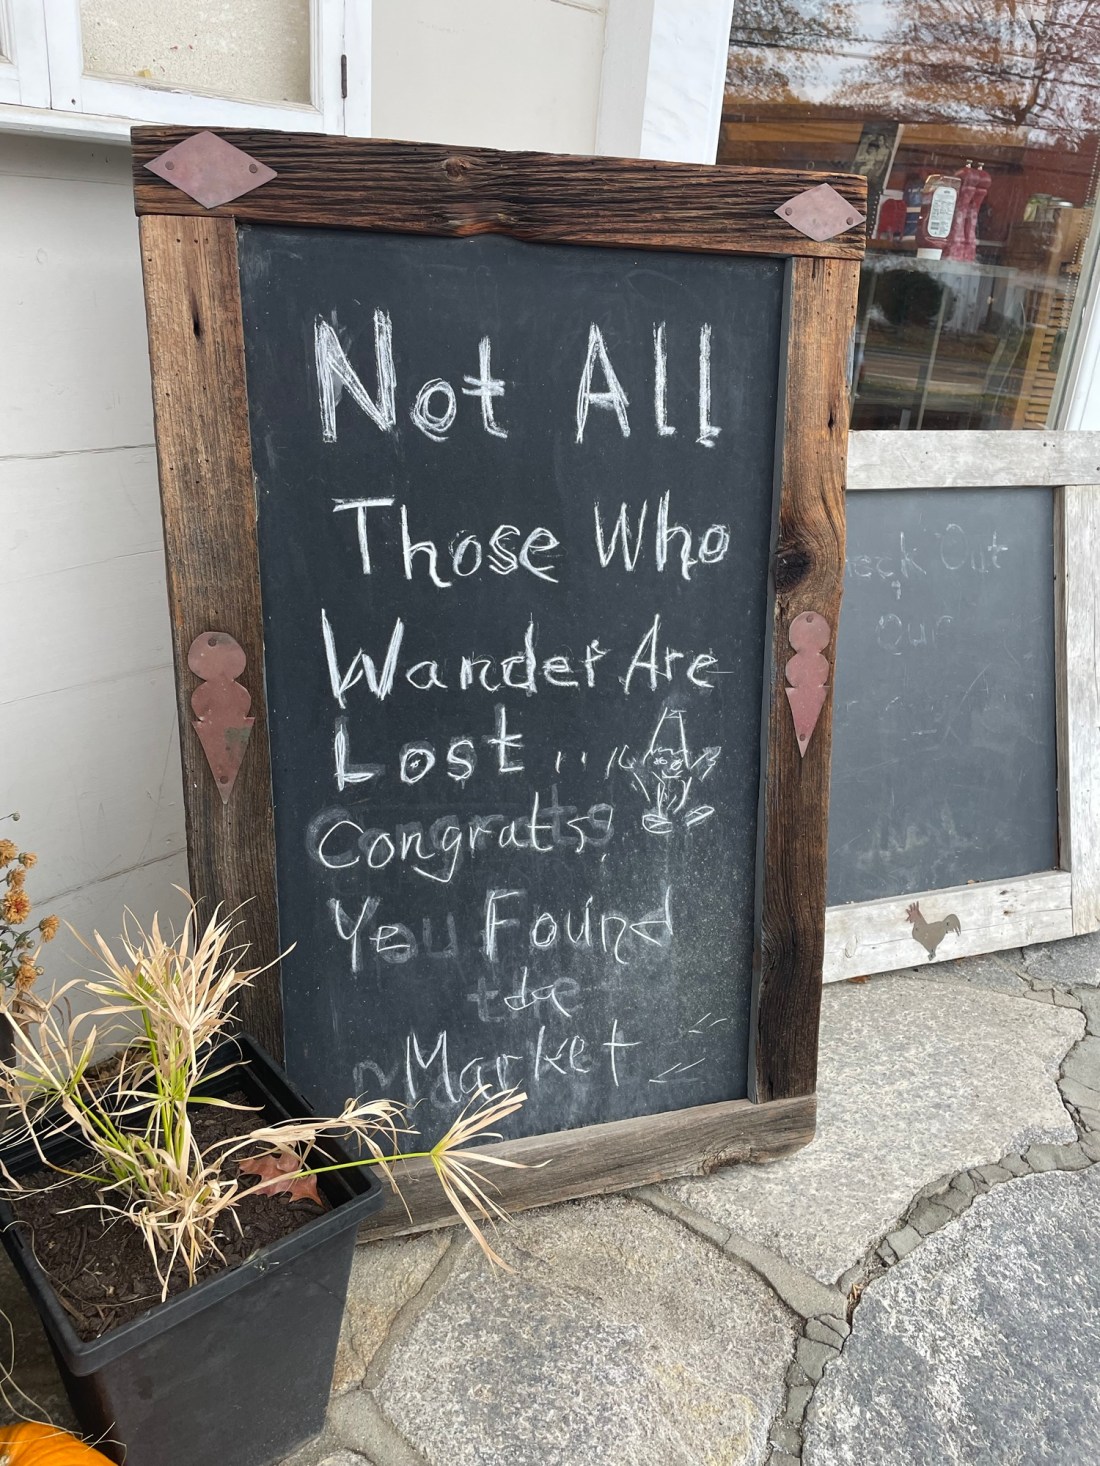 Not All
Those Who
Wander Are
Lost...
Congrats!
You Found
the
Market
Out
Our